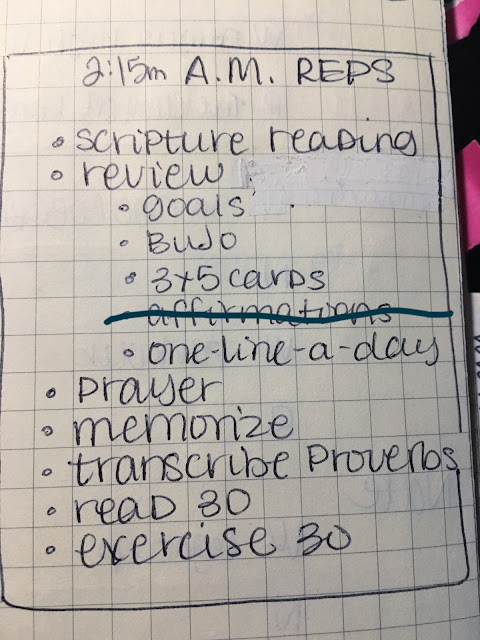 2:15m A.M. REPS
• scripture reading
• review
• goals
• BUJO
• 3x5 cards
• affirmations
• one-line-a-day
• prayer
• memorize
• transcribe Proverbs
• read 30
• exercise 30